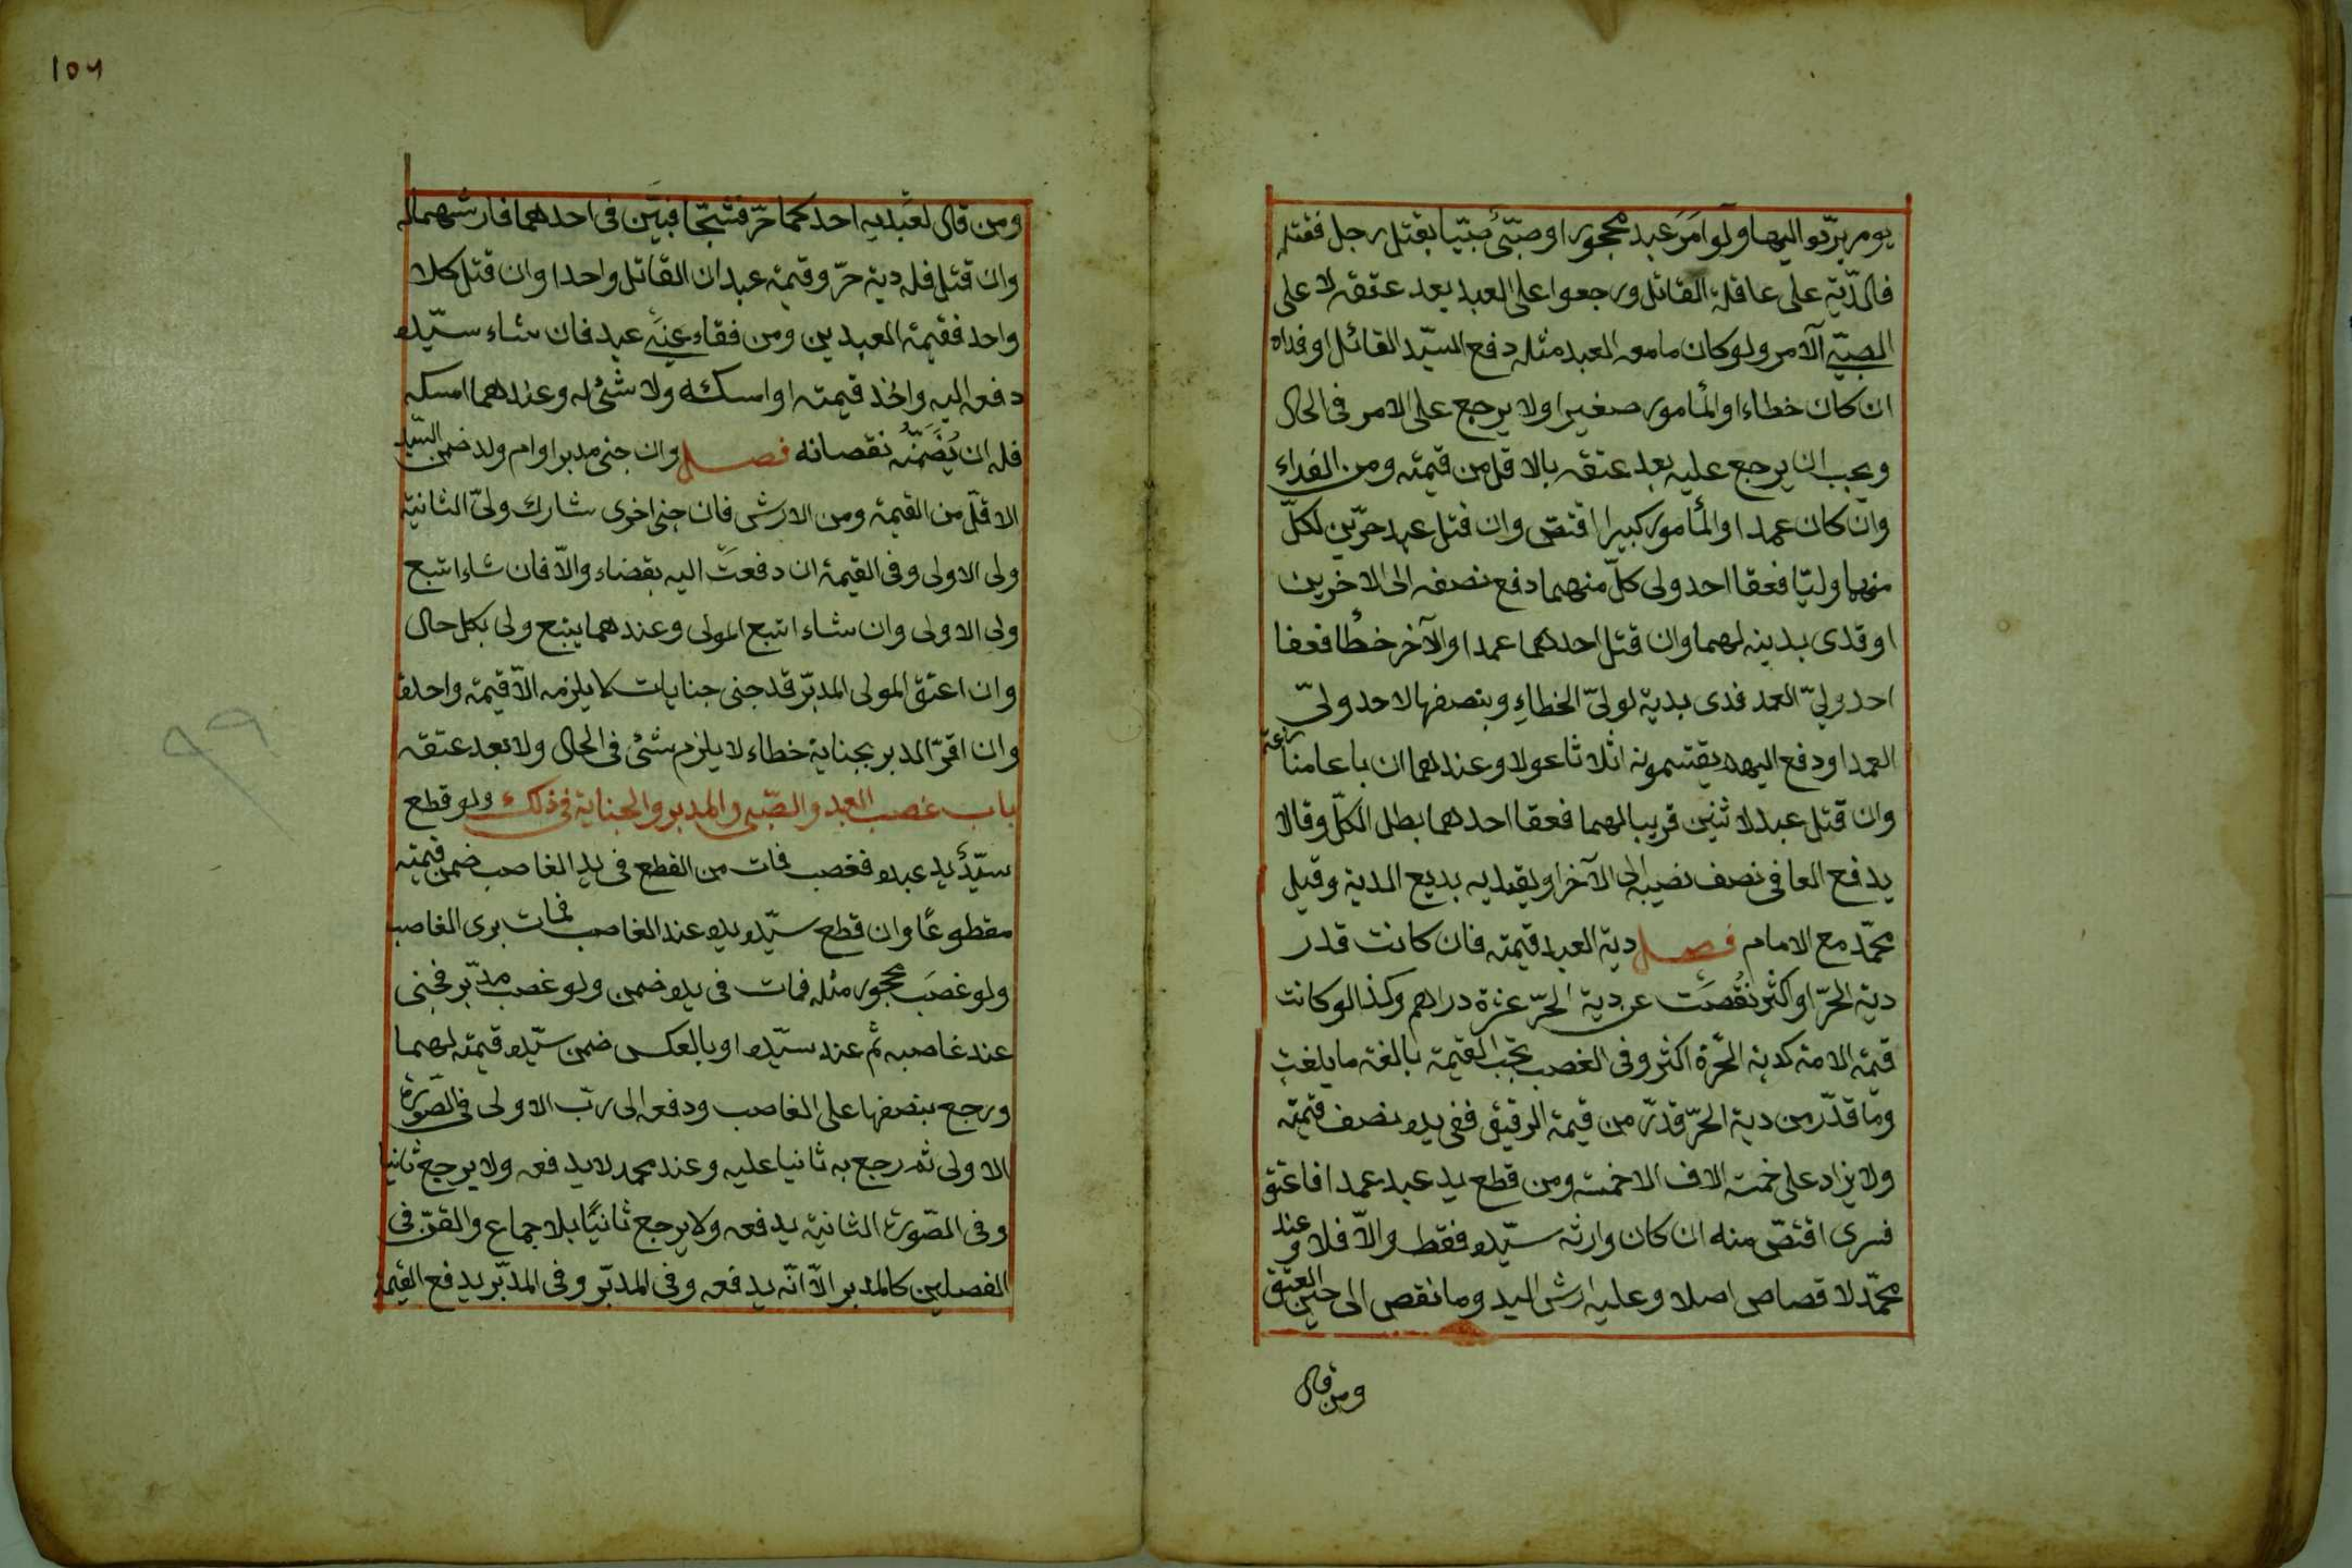 يوم يردّوا اليها ولو امَرَ عبد محجور او صبّى صبّيا بقتل رجل فقتله
فالدّية على عاقلة القاتل ورجعوا على العبد بعد عتقه لا على
الصبىّ الآمر ولو كان مامور العبد مثله دفع السيّد القاتل او فداه
ان كان خطاء او المأمور صغيرا ولا يرجع على الامر فى الحال
ويجب ان يرجع عليه بعد عتقه بالاقل من قيمته ومن الفداء
وان كان عمدا والمأمور كبيرا اقتصّ وان قتل عبد حرّين لكلّ
منهما وليّا فعفا احد ولى كلّ منهما دفع نصفه الى الاخرين
او فدى بدية لهما وان قتل احدهما عمدا والآخر خطأ فعفا
احد ولىّ العمد فدى بدية لولىّ الخطاءِ وبنصفها لاحد ولىّ
العمد او دفع اليهم يقتسمونه اثلاثا عولا وعندهما ارباعا منازعة
وان قتل عبد لاثنين قريبا لهما فعفا احدهما بطل الكلّ وقالا
يدفع العافى نصف نصيبه الى الآخر او يفديه بربع الدية وقيل
محمّد مع الامام فصل دية العبد قيمته فان كانت قدر
دية الحرّ او اكثر نقُصَت عن دية الحرّ عشرة دراهم وكذا لو كانت
قيمة الامة كدية الحُرّة اكثر وفى الغصب تجب القيمة بالغة ما بلغت
وما قدّر من دية الحرّ قدرّ من قيمة الرقيق ففى يده نصف قيمته
ولا يزاد على خمسة الاف الا خمسة ومن قطع يد عبد عمدا فاعتق
فسرى اقتصّ منه ان كان وارثه سيّده فقط والاّ فلا وعند
محمّد لا قصاص اصلا وعليه ارش اليد وما نقص الى حين العتق
ومن قال
١٥٦
ومن قال لعَبديه احدكما حرّ فشجّا فبيّن فى احدهما فارشهما له
وان قتل فله دية حرّ وقيمة عبد ان القاتل واحدا وان قتل كلا
واحد فقيمة العبدين ومن فقاء عينَى عبد فان شاء سيّده
دفعه اليه واخذ قيمته او امسكه ولا شئ له وعندهما امسكه
فله ان يُضَمِّنَهُ نقصانه فصل وان جنى مدبر او ام ولد ضمن السيّد
الاقلّ من القيمة ومن الارش فان جنى اخرى شارك ولىّ الثانية
ولى الاولى وفى القيمة ان دفعتْ اليه بقضاء والاّ فان شاء اتبع
ولى الاولى وان شاء اتبع المولى وعندهما يتبع ولى بكل حال
وان اعتق المولى المدبّر قد جنى جنايات لا يلزمه الاّ قيمة واحدة
وان اقرّ المدبر بجناية خطاء لا يلزم شئ فى الحال ولا بعد عتقه
باب غصب العبد والصّبى والمدبر والجناية فى ذلك ولو قطع
سيّدُ يد عبده فغصب فمات من القطع فى يد الغاصب ضمن قيمته
مقطوعًا وان قطع سيّده يده عند الغاصب فمات برى الغاصب
ولو غصَبَ محجور مثله فمات فى يده ضمن ولو غصب مدبّر فجنى
عند غاصبه ثم عند سيّده او بالعكس ضمن سيّده قيمته لهما
ورجع بنصفها على الغاصب ودفعه الى ربّ الاولى فى الصّورة
الاولى ثم رجع به ثانيا عليه وعند محمد لا يدفعه ولا يرجع ثانيا
وفى الصّورة الثانية يدفعه ولا يرجع ثانيًا بلا جماع والقنّ فى
الفصلين كالمدبر الاّ انّه يدفعه وفى المدبّر وفى المدبّر يدفع القيمة
٩٩